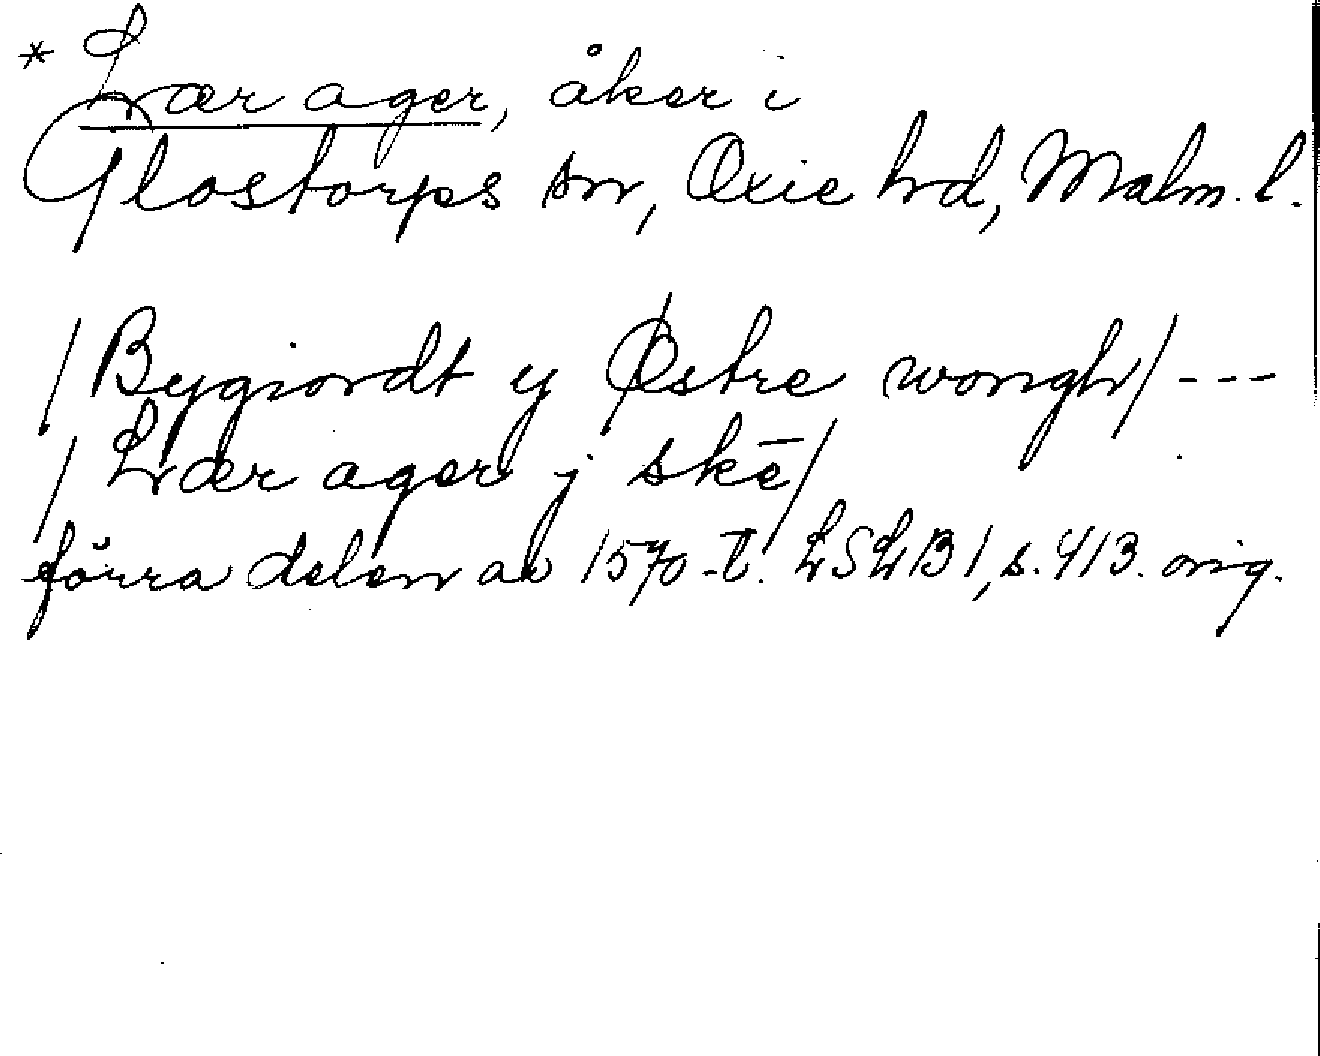 * Lær ager, åker i
Glostorps sn, Oxie hd, Malm. l.
/Bygiordt y Østre wongh/ ---
/Lær ager j skē/
förra delen av 1570-t. LSLB1, s. 413. orig.